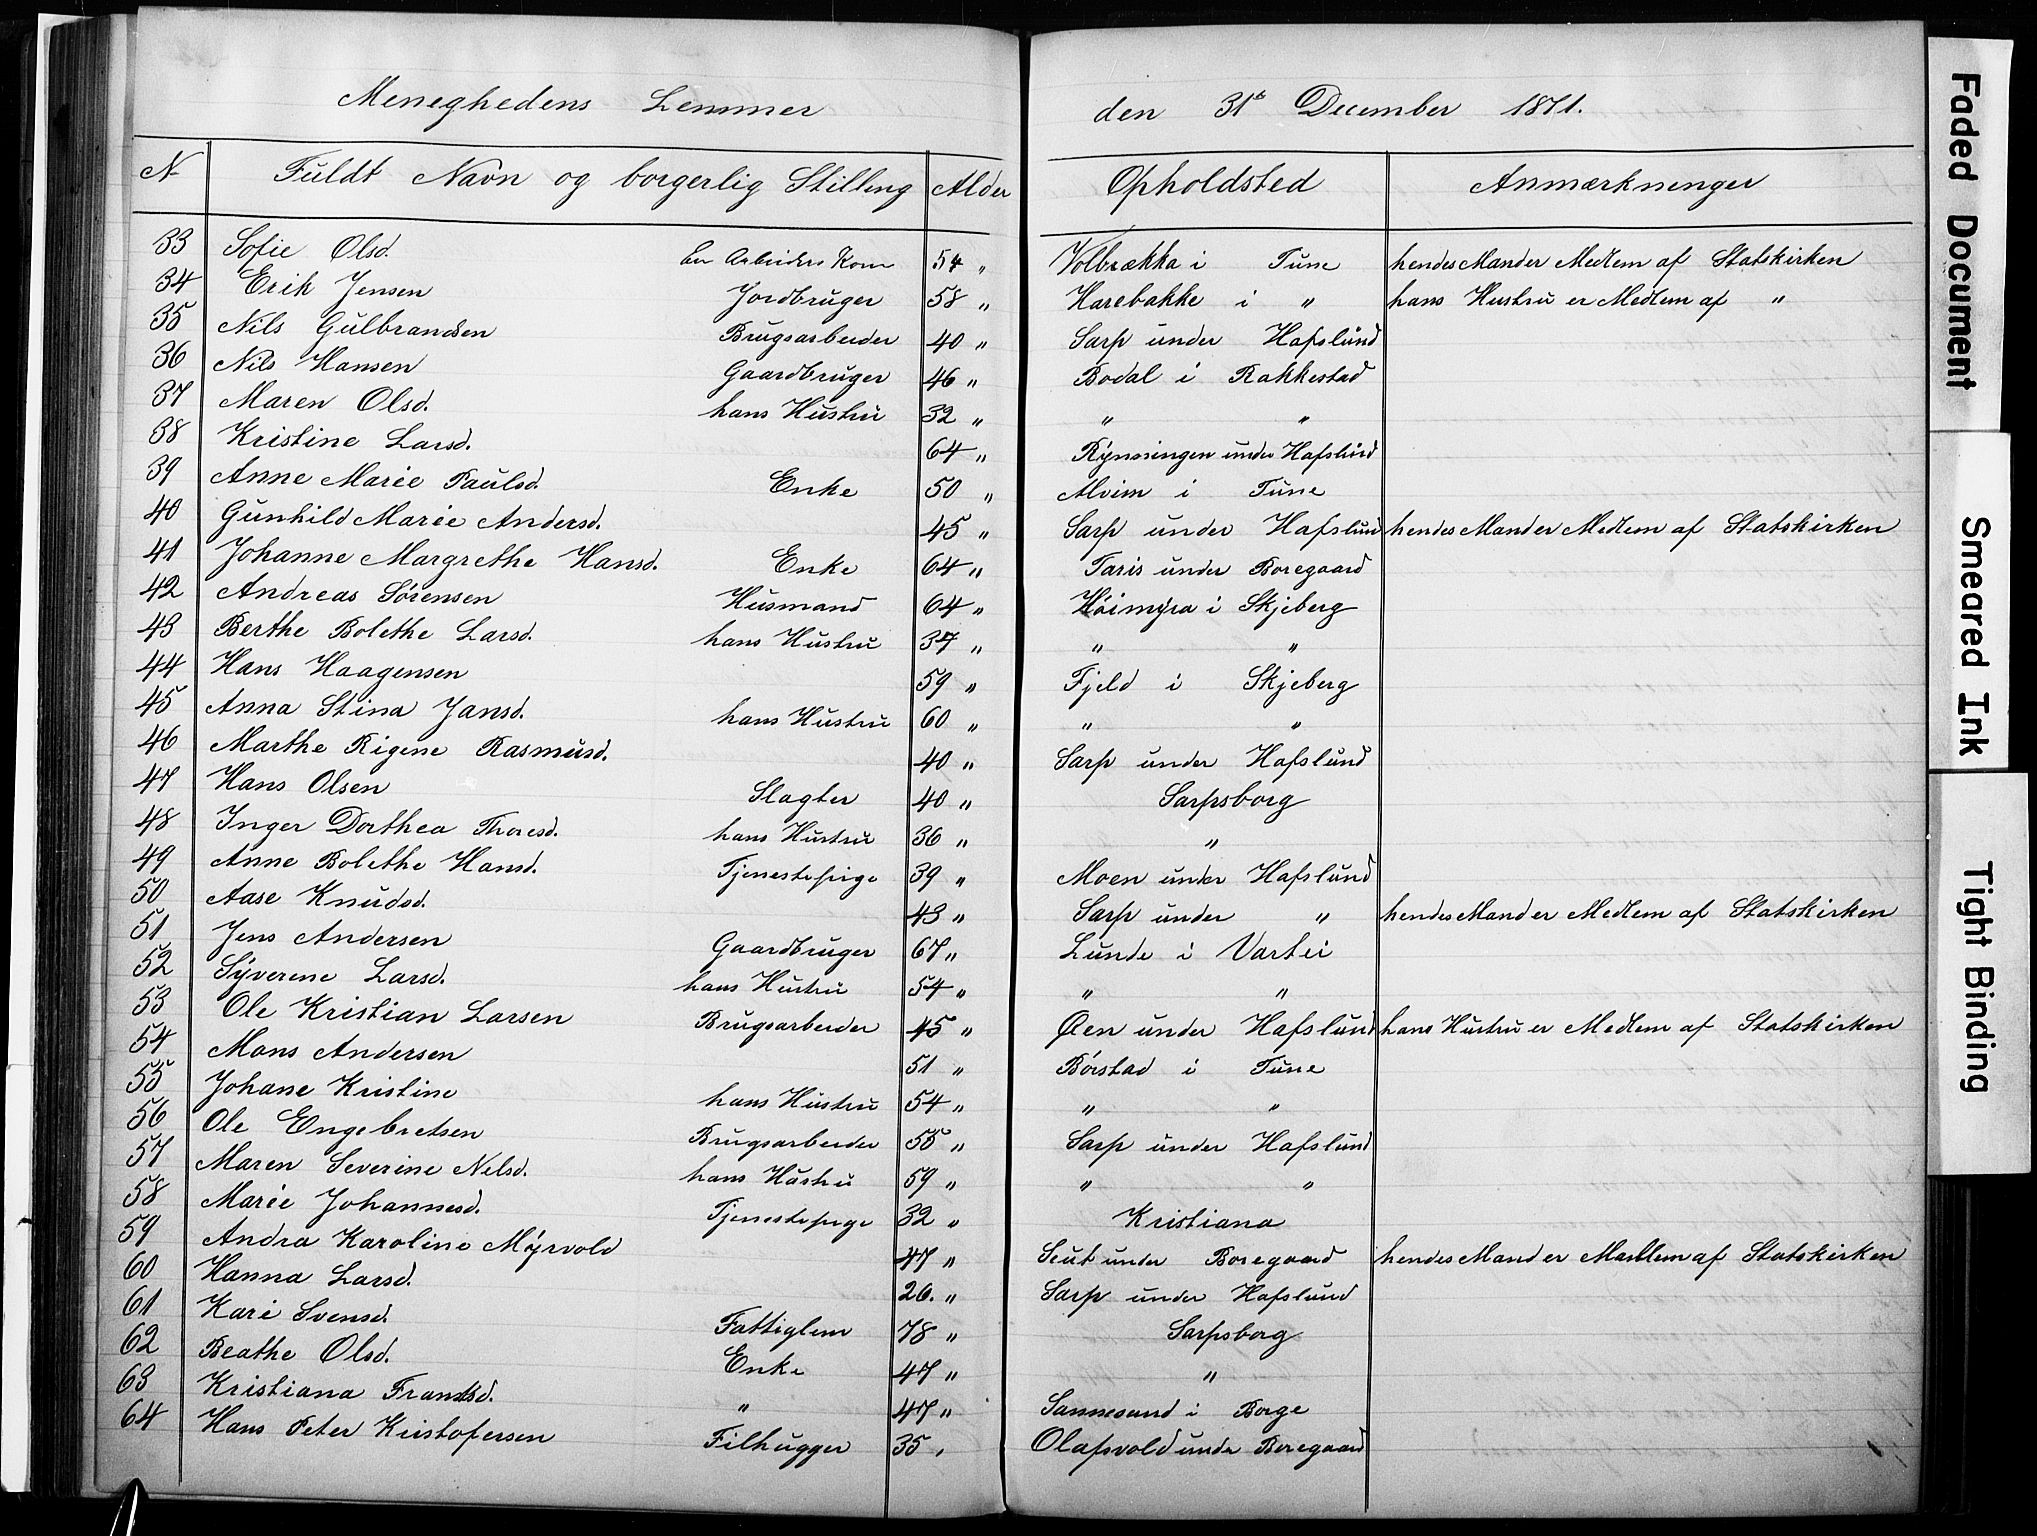 Meneghedens Lemmer den 31te December 1871.
N Fuldt Navn og borgerlig Stilling Alder Opholdsted Anmærkninger
33 Sofie Olsd. en Arbeiders Kone 54 " Volbrækka i Tune hendes Mand er Medlem af Statskirken
34 Erik Jensen Jordbruger 58 " Harebakke i " hans Hustru er Medlem af "
35 Nils Gulbrandsen Brugsarbeider 40 " Sarp under Hafslund
36 Nils Hansen Gaardbruger 46 " Bodal i Rakkestad
37 Maren Olsd. hans Hustru 32 " " "
38 Kristine Larsd. 64 " Rynningen under Hafslund
39 Anne Marie Paulsd. Enke 50 " Alvim i Tune
40 Gunhild Marie Andersd. 45 " Sarp under Hafslund hendes Mand er Medlem af Statskirken
41 Johanne Margrethe Hansd. Enke 64 " Taris under Boregaard
42 Andreas Sørensen Husmand 64 " Høimyra i Skjeberg
43 Berthe Bolethe Larsd. hans Hustru 37 " " "
44 Hans Haagensen 59 " Fjeld i Skjeberg
45 Anna Stina Jansd. hans Hustru 60 " " "
46 Marthe Rigene Rasmusd. 40 " Sarp under Hafslund
47 Hans Olsen Slagter 40 " Sarpsborg
48 Inger Dorthea Thoresd. hans Hustru 36 " "
49 Anne Bolethe Hansd. Tjenestepige 39 " Moen under Hafslund
50 Aase Knudsd. 43 " Sarp under " hendes Mand er Medlem af Statskirken
51 Jens Andersen Gaardbruger 67 " Lunde i Vartei
52 Syverene Larsd. hans Hustru 54 " " "
53 Ole Kristian Larsen Brugsarbeider 45 " Øen under Hafslund hans Hustru er Medlem af Statskirken
54 Mons Andersen 51 " Børstad i Tune
55 Johane Kristine hans Hustru 54 " " "
56 Ole Engebretsen Brugsarbeider 55 " Sarp under Hafslund
57 Maren Severine Nelsd. hans Hustru 59 " " "
58 Marie Johannesd. Tjenestepige 32 " Kristiana
59 Andra Karoline Myrvold 47 " Seut under Boregaard hendes Mand er Medlem af Statskirken
60 Hanna Larsd. 26. " Sarp under Hafslund
61 Kari Svensd. Fattiglem 78 " Sarpsborg
62 Beathe Olsd. Enke 47 " "
63 Kristiana Frandsd. " 47 " Sannesund i Borge
64 Hans Peter Kristofersen Filhugger 35 " Olafsvold under Boregaard
Faded Document
Smeared Ink
Tight Binding